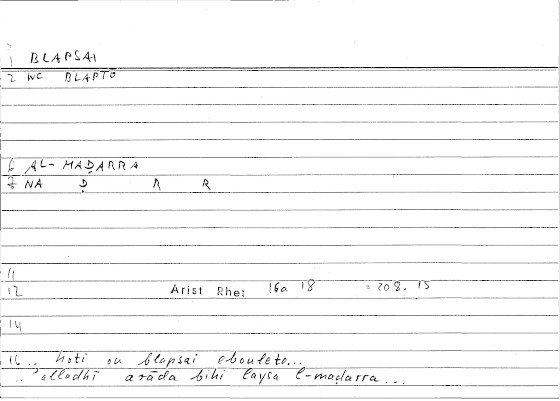 1 BLAPSAI
2 WC BLAPTŌ
6 AL-MAḌARRA
7 NA Ḍ R R
11
12 Arist Rhet 16a 18 = 208. 15
14
16 .. hoti ou blapsai ebouleto...
.. 'alladhī arāda bihi laysa l-maḍarra...